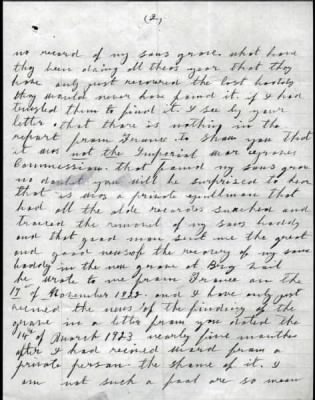 (2)
no record of my sons grave. what have
they been doing all these year that they
have only just recovered the lost boddy
they would never have found it. if I had
trusted them to find it. I see by your
letter. that there is nothing in the
report from France. to show you that
it was not the Imperial war Graves
Commission. that found my sons grave
no doubt you will be surprised to hear
that it was a private gentleman that
had all the olde recordes searched and
traced the removel of my sons boddy
and that good man sent me the great
and good news of the recovry of my sons
boddy in the new grave at
he wrote to me from France on the
17th of November 1922. and I have only just
recived the news of the finding of the
grave in a letter from you dated the
14th of March 1923. nearly five months
after I had recived word from a
private person. the shame of it. I
am not such a fool are so mean